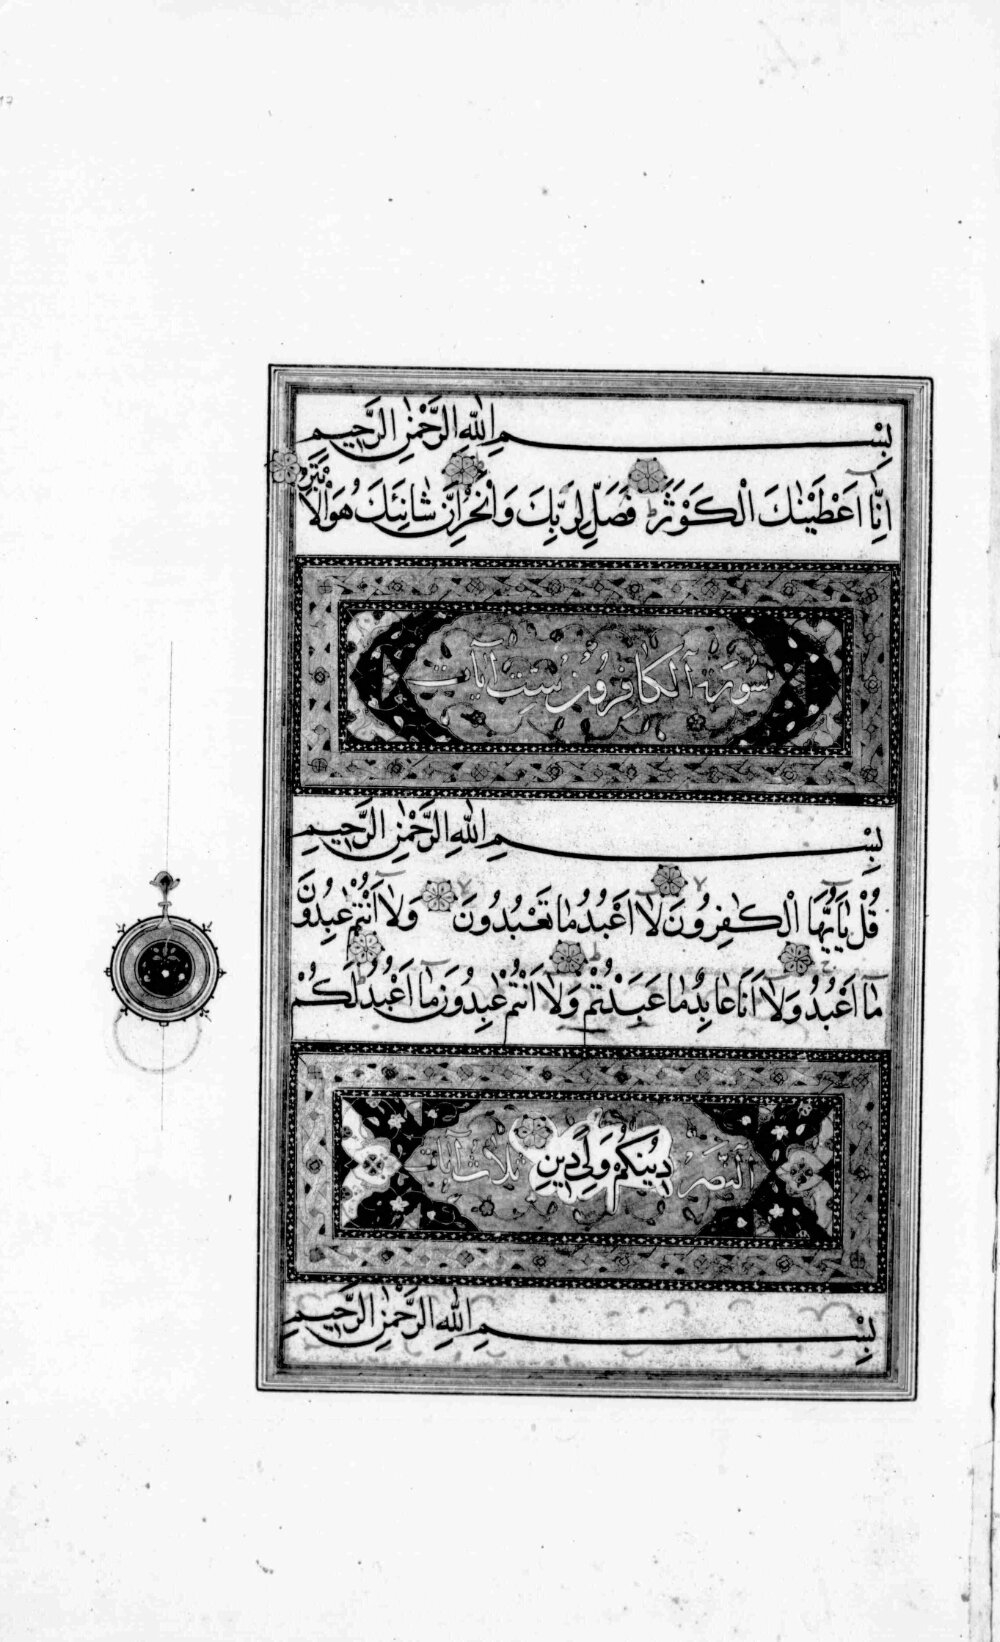 بِسْمِ اللّٰهِ الرَّحْمٰنِ الرَّحِيمِ
اِنَّٓا اَعْطَيْنٰكَ الْكَوْثَرَ فَصَلِّ لِرَبِّكَ وَانْحَرْ اِنَّ شَانِئَكَ هُوَ الْاَبْتَرُ
سورة الكافرون ست آيات
بِسْمِ اللّٰهِ الرَّحْمٰنِ الرَّحِيمِ
قُلْ يٰٓاَيُّهَا الْكٰفِرُونَ لَٓا اَعْبُدُ مَا تَعْبُدُونَ وَلَٓا اَنْتُمْ عٰبِدُونَ
مَٓا اَعْبُدُ وَلَٓا اَنَا عَابِدٌ مَا عَبَدْتُمْ وَلَٓا اَنْتُمْ عٰبِدُونَ مَٓا اَعْبُدُ لَكُمْ
النصر دِينُكُمْ وَلِيَ دِينِ ثلاث آيات
بِسْمِ اللّٰهِ الرَّحْمٰنِ الرَّحِيمِ